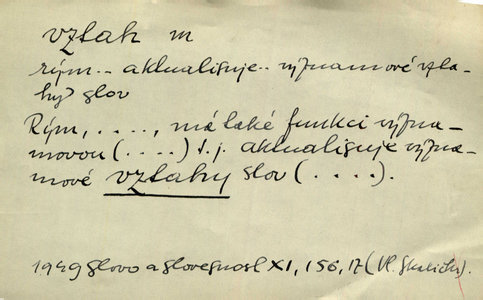 vztah m
rým.. aktualisuje.. významové vzta-
hy slov
Rým, . . . ., má také funkci význa-
movou (. . . .) t.j. aktualisuje význa-
mové vztahy slov (. . . .).
1949 Slovo a slovesnost XI, 156, 17 (Vl. Skalička).